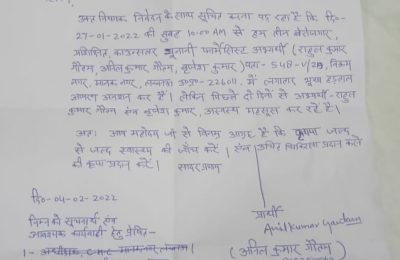 अतः विनम्रक निवेदन के साथ सूचित करना पड़ रहा है कि दि०-
27-01-2022 की सुबह 10:00 AM से हम तीन बेरोजगार,
प्रशिक्षित, यूनानी फार्मेसिस्ट अभ्यर्थी (राहुल कुमार
गौतम, अनिल कुमार गौतम, कुमार) पता- 548-V/ विक्रम
नगर, मानक नगर, लखनऊ उ०प्र०-226011, में लगातार भूख हड़ताल
आमरण अनशन कर रहे हैं। लेकिन पिछले दो दिनों से अभ्यर्थी - राहुल
कुमार गौतम एवं कुमार, अस्वस्थ महसूस कर रहे हैं।
अतः आप महोदय जी से विनम्र आग्रह है कि कृपया जल्द
से जल्द स्वास्थ्य की जाँच करें। एवं उचित चिकित्सा प्रदान करने
की कृपा प्रदान करें। सादर प्रणाम
दि०-04-02-2022
निम्न को सूचनार्थ एवं
आवश्यक कार्यवाही हेतु प्रेषित-
प्रार्थी
Anil kumar Gautam
(अनिल कुमार गौतम)
1- अधीक्षक, C.H.C